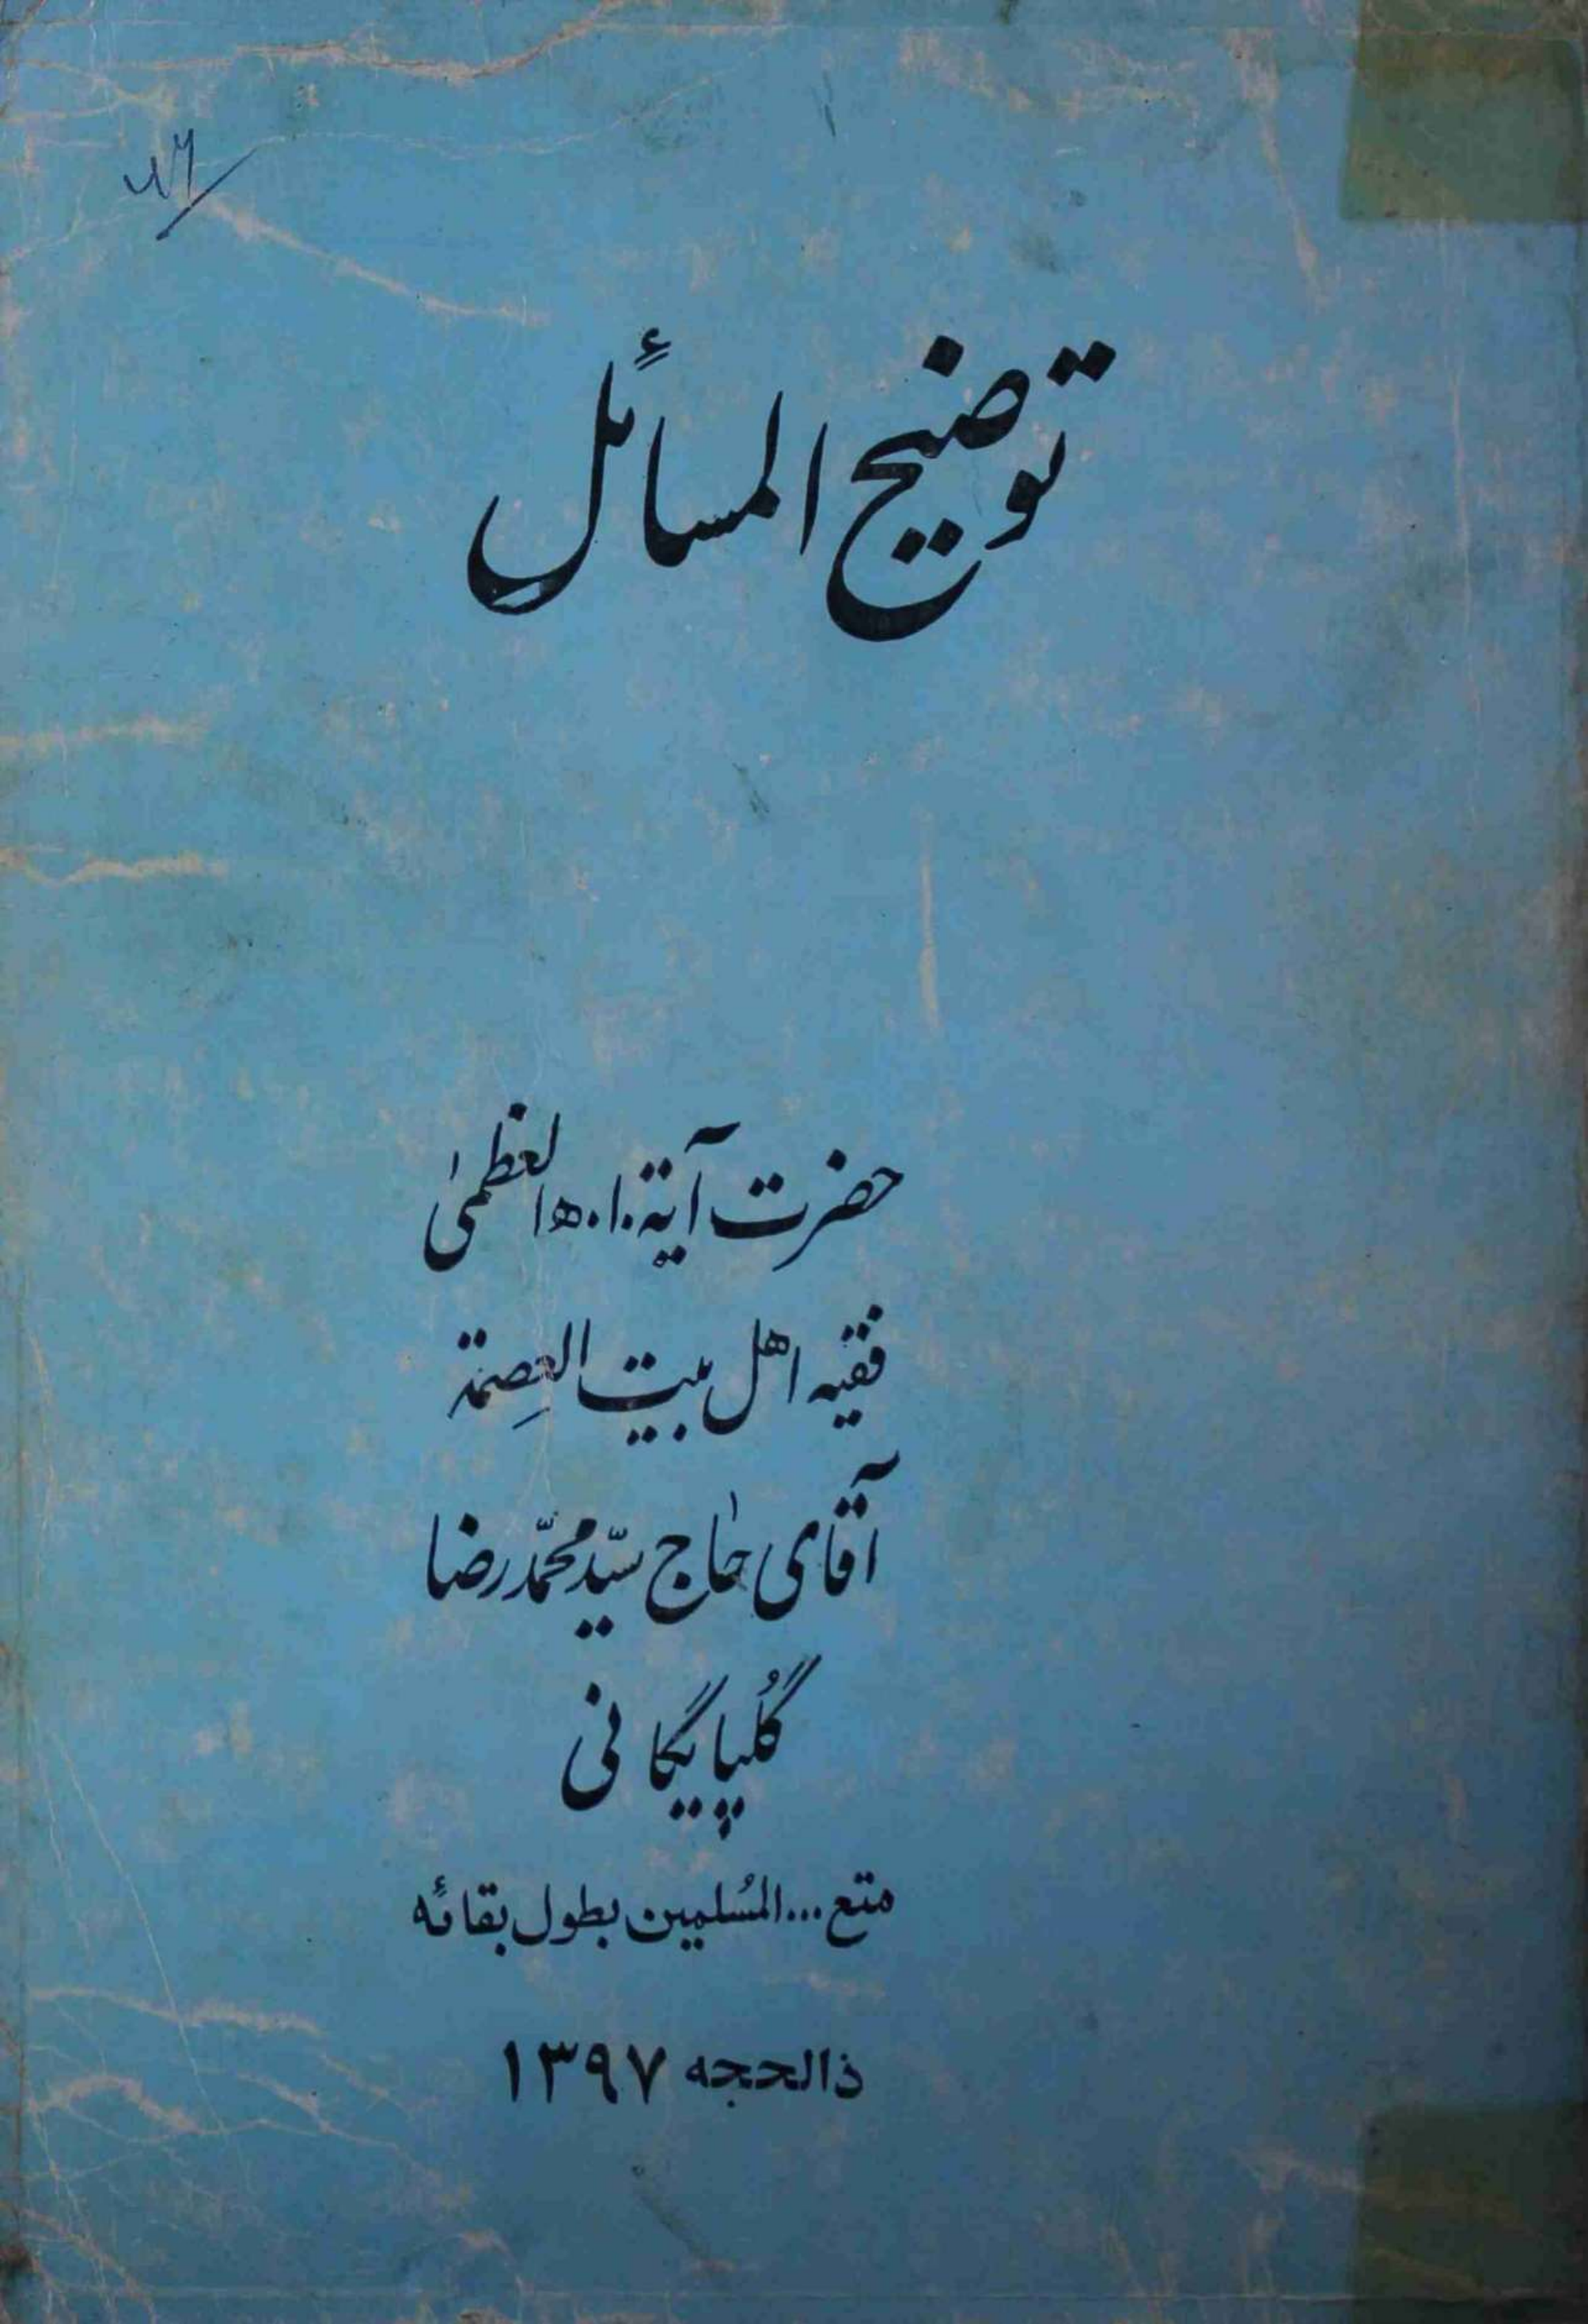 توضیح المسائل
حضرت آیة ا.. العظمیٰ
فقیه اهل بیت العصمة
آقای حاج سیّد محمّد رضا
گلپایگانی
متع ... المُسلمین بطول بقائه
ذالحجه ۱۳۹۷